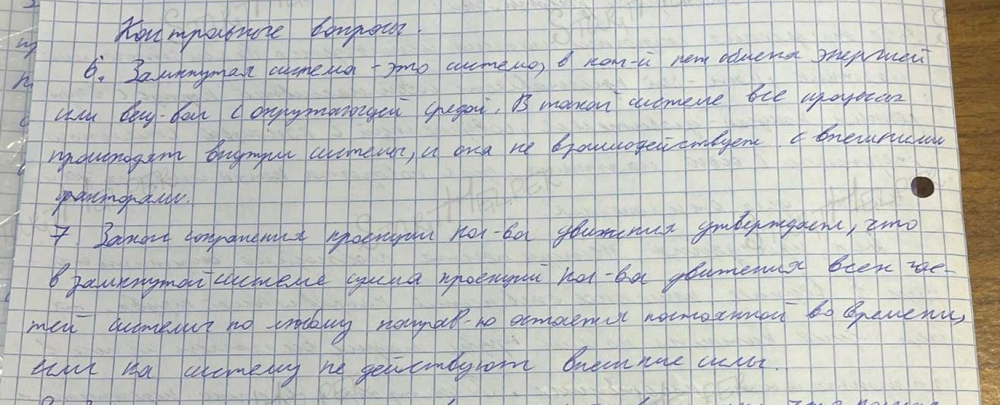 Контрольные вопросы.
6. Замкнутая система - это система, в кот-й нет обмена энергией
или вещ-вом с окружающей средой. В такой системе все процессы
происходят внутри системы, и она не взаимодействует с внешними
факторами.
7 Закон сохранения проекции кол-ва движения утверждает, что
в замкнутой системе сумма проекций кол-ва движения всех час-
тей системы по любому направ-ю остается постоянной во времени,
если на систему не действуют внешние силы.